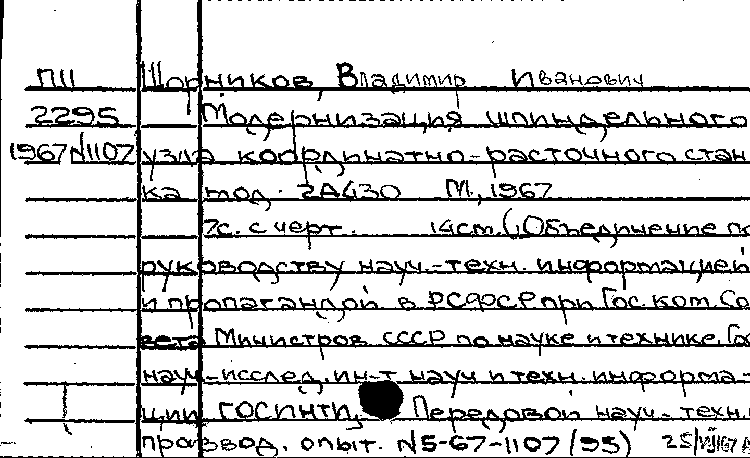 ПII Шорников, Владимир Иванович
2295 Модернизация шпиндельного
1967N1107 узла координатно-расточного стан
ка мод. 2А430 М, 1967
7с. с черт. 14см. (Объединение по
руководству науч.-техн. информацией
и пропагандой в РСФСР при Гос. ком. Со
вета Министров СССР по науке и технике. Го
науч-исслед. ин-т науч и техн. информа-
ции ГОСИНТИ, Передовой науч.-техн.
произвед. опыт. N5-67-1107/95)